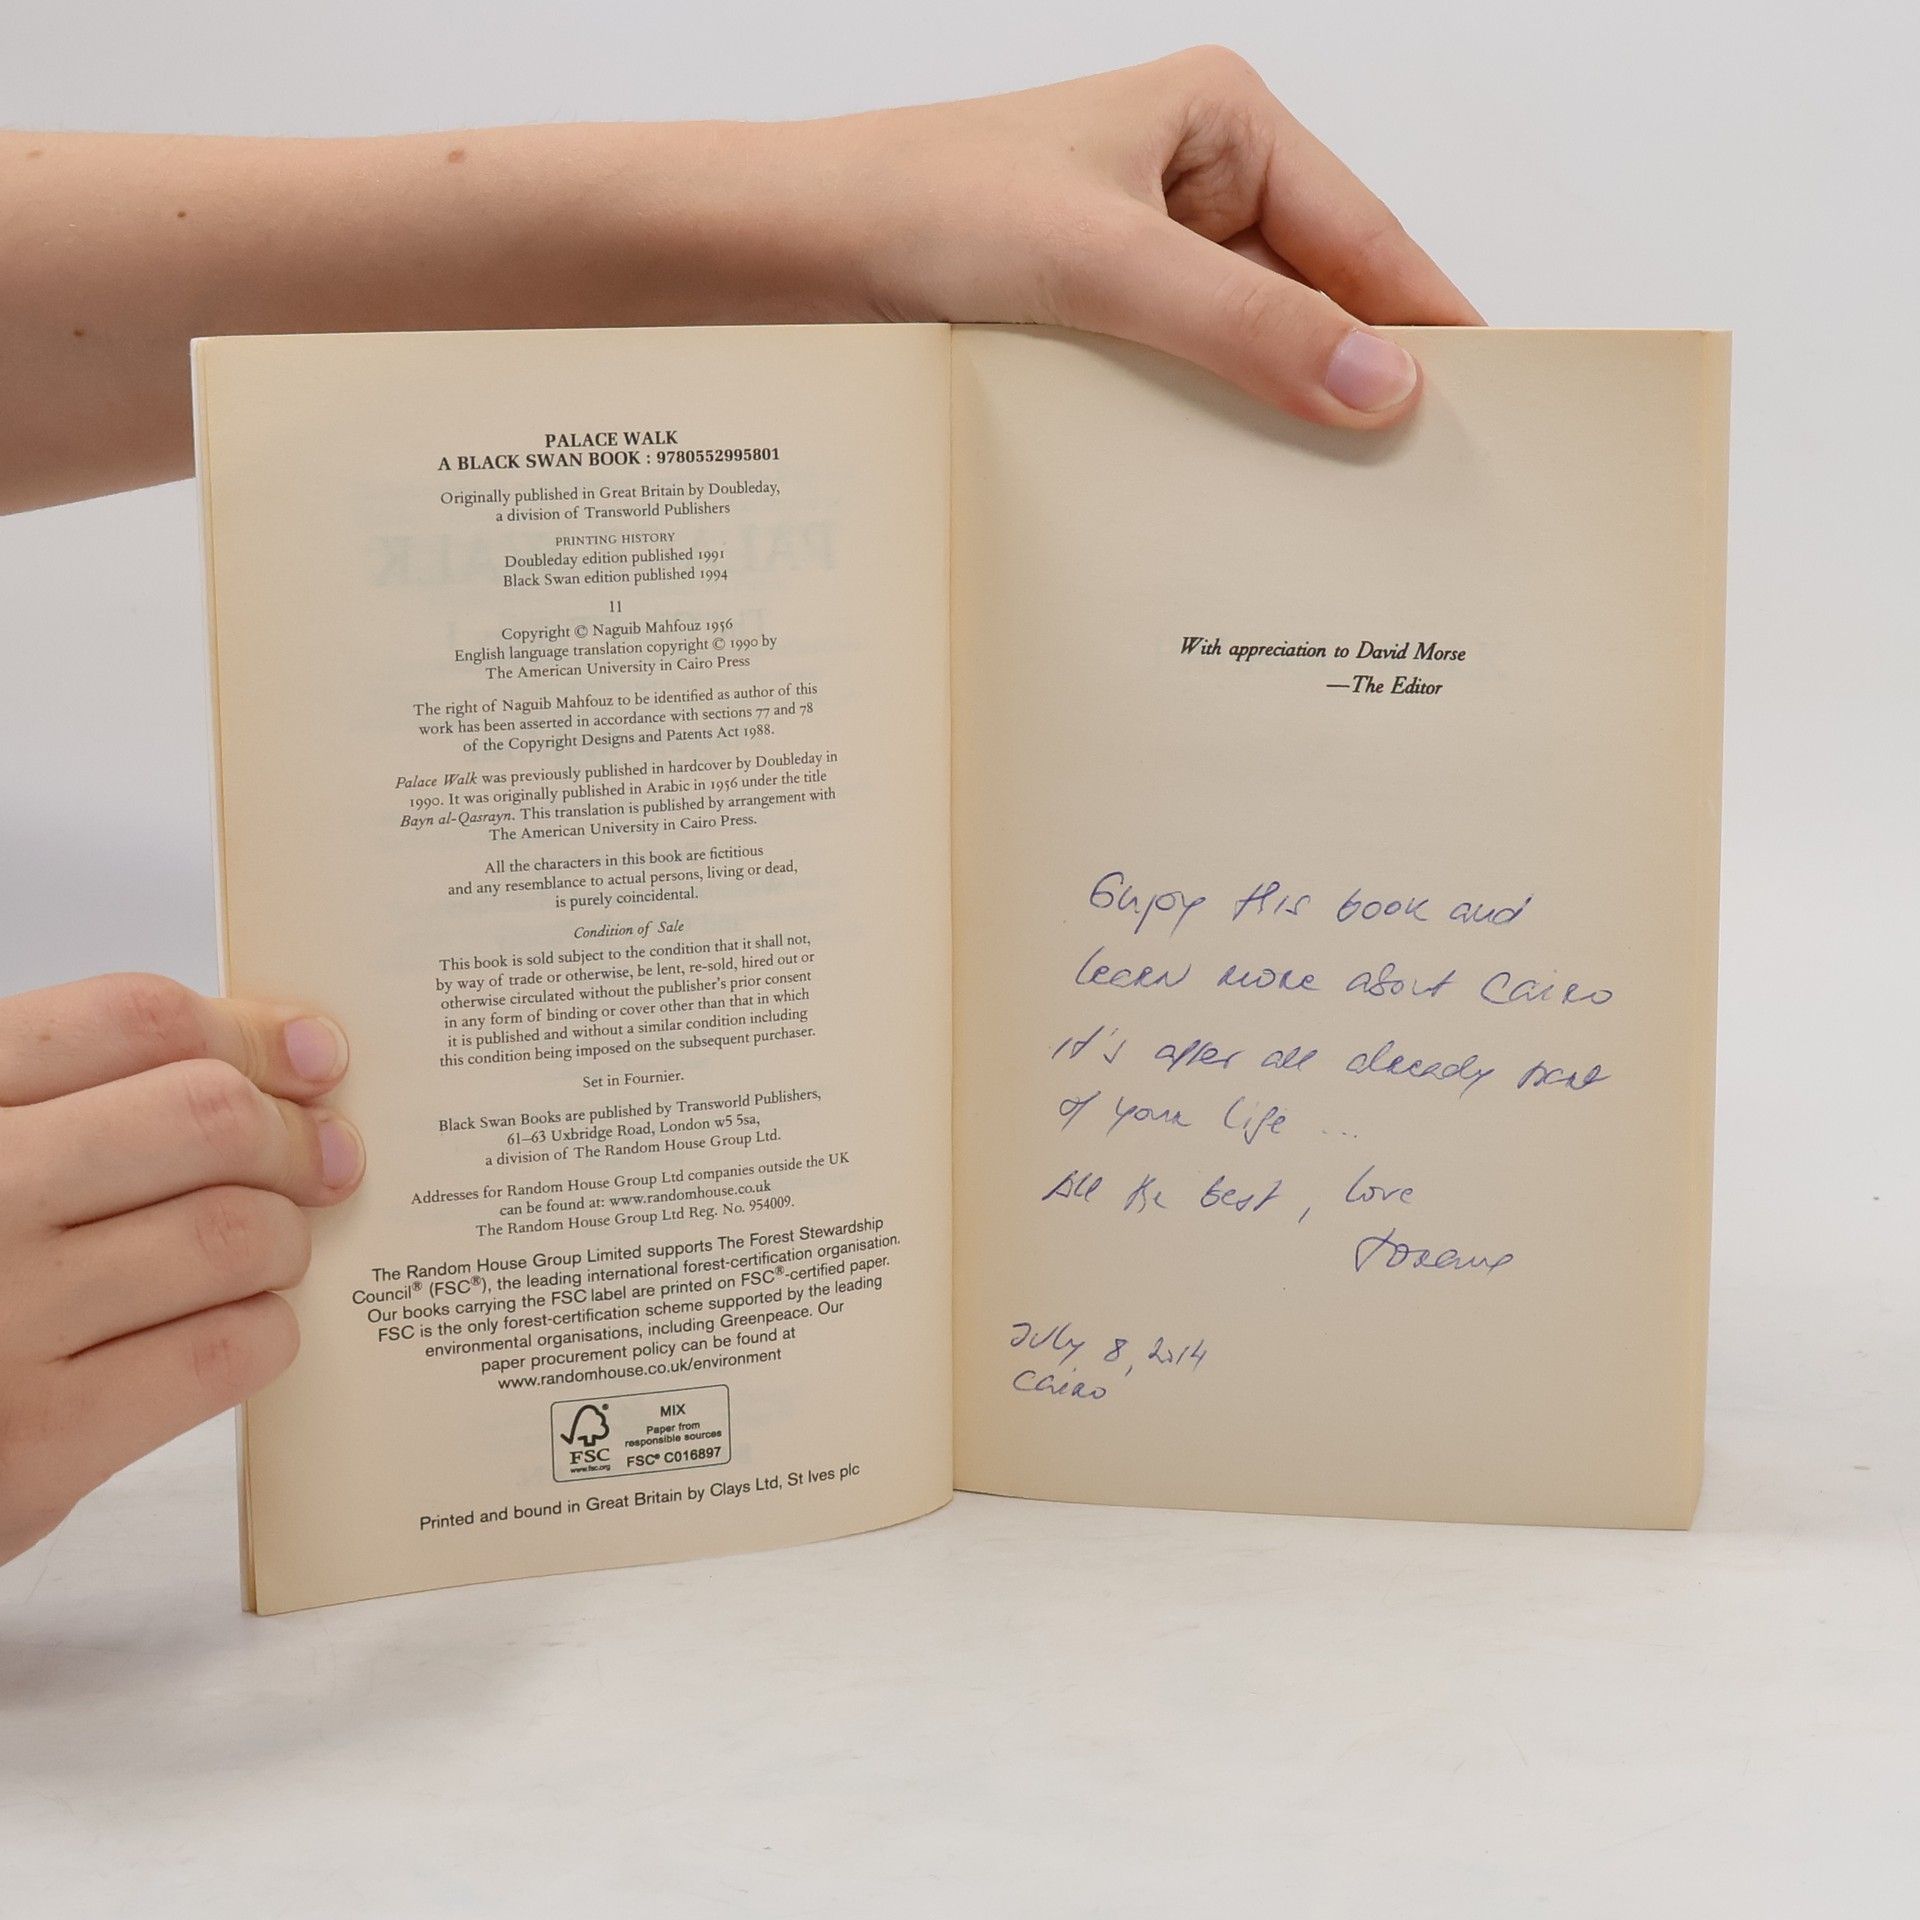 PALACE WALK
A BLACK SWAN BOOK : 9780552995801
Originally published in Great Britain by Doubleday,
a division of Transworld Publishers
PRINTING HISTORY
Doubleday edition published 1991
Black Swan edition published 1994
11
Copyright © Naguib Mahfouz 1956
English language translation copyright © 1990 by
The American University in Cairo Press
The right of Naguib Mahfouz to be identified as author of this
work has been asserted in accordance with sections 77 and 78
of the Copyright Designs and Patents Act 1988.
Palace Walk was previously published in hardcover by Doubleday in
1990. It was originally published in Arabic in 1956 under the title
Bayn al-Qasrayn. This translation is published by arrangement with
The American University in Cairo Press.
All the characters in this book are fictitious
and any resemblance to actual persons, living or dead,
is purely coincidental.
Condition of Sale
This book is sold subject to the condition that it shall not,
by way of trade or otherwise, be lent, re-sold, hired out or
otherwise circulated without the publisher's prior consent
in any form of binding or cover other than that in which
it is published and without a similar condition including
this condition being imposed on the subsequent purchaser.
Set in Fournier.
Black Swan Books are published by Transworld Publishers,
61–63 Uxbridge Road, London W5 5SA,
a division of The Random House Group Ltd.
Addresses for Random House Group Ltd companies outside the UK
can be found at: www.randomhouse.co.uk
The Random House Group Ltd Reg. No. 954009.
The Random House Group Limited supports The Forest Stewardship
Council® (FSC®), the leading international forest-certification organisation.
Our books carrying the FSC label are printed on FSC®-certified paper.
FSC is the only forest-certification scheme supported by the leading
environmental organisations, including Greenpeace. Our
paper procurement policy can be found at
www.randomhouse.co.uk/environment
FSC
www.fsc.org
MIX
Paper from
responsible sources
FSC® C016897
Printed and bound in Great Britain by Clays Ltd, St Ives plc
With appreciation to David Morse
—The Editor
Enjoy this book and
learn more about Cairo
it's after all already part
of your life ...
All the best, love
July 8, 2014
Cairo